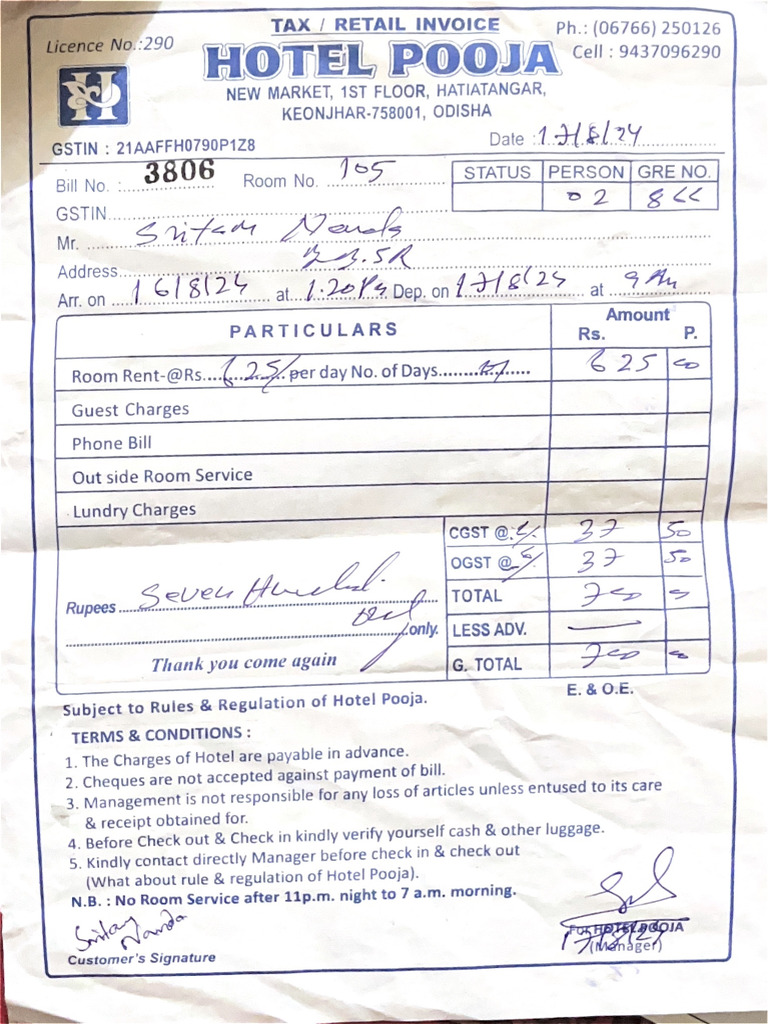 TAX / RETAIL INVOICE
Licence No.:290
Ph.: (06766) 250126
HOTEL POOJA
Cell : 9437096290
NEW MARKET, 1ST FLOOR, HATIATANGAR,
KEONJHAR-758001, ODISHA
GSTIN : 21AAFFH0790P1Z8
Date : 17/8/24
Bill No. : 3806 Room No. 105
STATUS PERSON GRE NO.
02
GSTIN
Mr. Sritam Nanda
Address
Arr. on 16/8/24 at 1.20PM Dep. on 17/8/24 at 9 AM
PARTICULARS
Amount
Rs. P.
Room Rent-@Rs. 625/ per day No. of Days 625 00
Guest Charges
Phone Bill
Out side Room Service
Lundry Charges
CGST @ 37 50
OGST @ 37 50
Rupees Seven Hundred
TOTAL 700
only. LESS ADV. —
Thank you come again
G. TOTAL 700
E. & O.E.
Subject to Rules & Regulation of Hotel Pooja.
TERMS & CONDITIONS :
1. The Charges of Hotel are payable in advance.
2. Cheques are not accepted against payment of bill.
3. Management is not responsible for any loss of articles unless entused to its care
& receipt obtained for.
4. Before Check out & Check in kindly verify yourself cash & other luggage.
5. Kindly contact directly Manager before check in & check out
(What about rule & regulation of Hotel Pooja).
N.B. : No Room Service after 11p.m. night to 7 a.m. morning.
Sritam
Nanda
For HOTEL POOJA
17/8/24
(Manager)
Customer's Signature